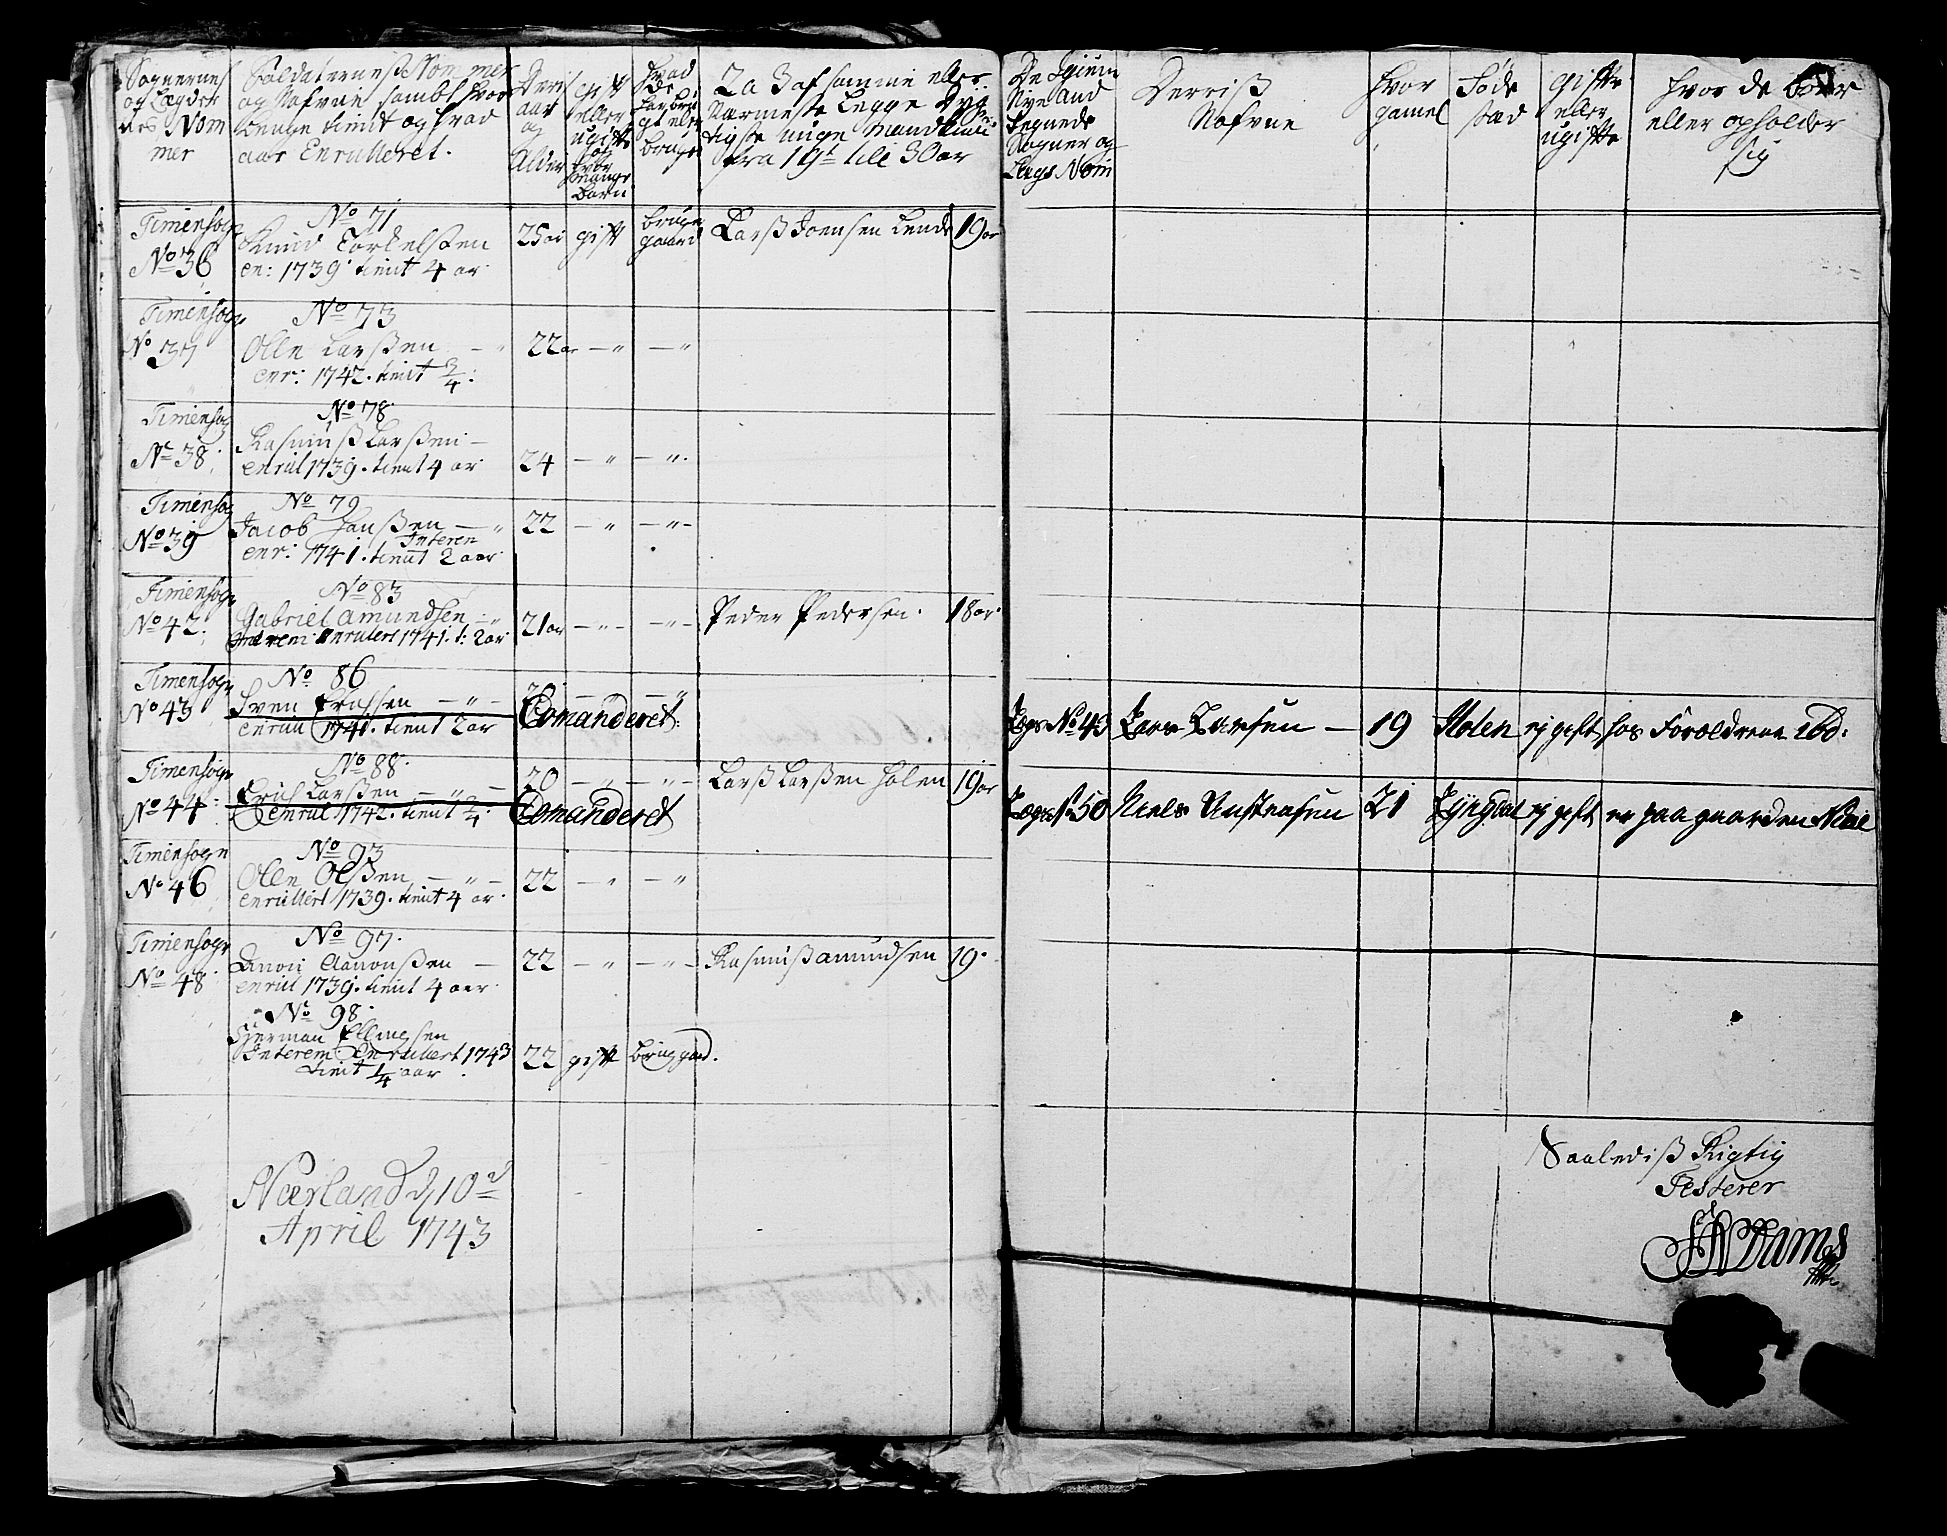 Sognernes
og Lægder
nes Nom
mer
Soldaternes Nommer
og Nafvne sambt hvor
lenge tient og hvad
aar Enrulleret.
Deris
aar
og
Alder
gift
eller
ugifte
og
hvor
mange
børn
hvad
de
bruge
2 a 3 af samme eller
Nærmeste Legge Dyg
tigste unge Mandkiøn
fra 19 til 30 aar
Sogner og
Legs Nom
Derris
Nafvne
hvor
gamel
Føde
stæd
gifte
eller
ugifte
hvor de boer
eller opholder
sig
Timensogn
No 36
No 71
Knud Torkelssen
en: 1739 tient 4 ar
25 ar
gift
bruger
gaard
Larss Joensen Lende
19 ar
Timensogn
No 37
No 73
Olle Larssen — "
enr: 1742. tient 3/4:
22 ar — " — "
Timensogn
No 38
No 78
Rasmuss Larssen —
enrul 1739. tient 4 ar
24 — " — "
Timensog
No 39
No 79
Jacob Hanssen — "
Interen
enr: 1741. tient 2 aar
22 — " — " -
Timensogn
No 42
No 83
Gabriel Amundsen — "
Interem Enrulert 1741. t: 2 ar
21 ar — " — " —
Peder Pedersen.
18 ar
Timensogn
No 43
No 86
Sven Erichsen — " —
enrull 1741. tient 2 ar
20 — — "
Comanderet:
Legs No 43
Lars Larsen —
19
Holen
ej gift
hos Forældrene
Timensogn
No 44
No 88.
Erich Larssen — " —
Enrul 1742. tient 3/4.
20 — " — " —
Comanderet
Larss Larssen Holen
19 ar
Legs No 50
Niels
21
Lyngdal
ej gift
er paa gaarden
Timensogn
No 46
No 93
Olle Olssen — " —
enrullert 1739. tient 4 ar
22 — " — "
Timensogn
No 48
No 97.
Aanonssen —
enrul 1739. tient 4 aar
22 — " — " —
Rasmuss Amundsen
19.
No 98.
Herman Ellingsen
Interem Enrulert 1743
tient 1/4 aar
22
gift
brug gard.
Nærland d 10d
April 1743
Saalediss Rigtig
Testerer